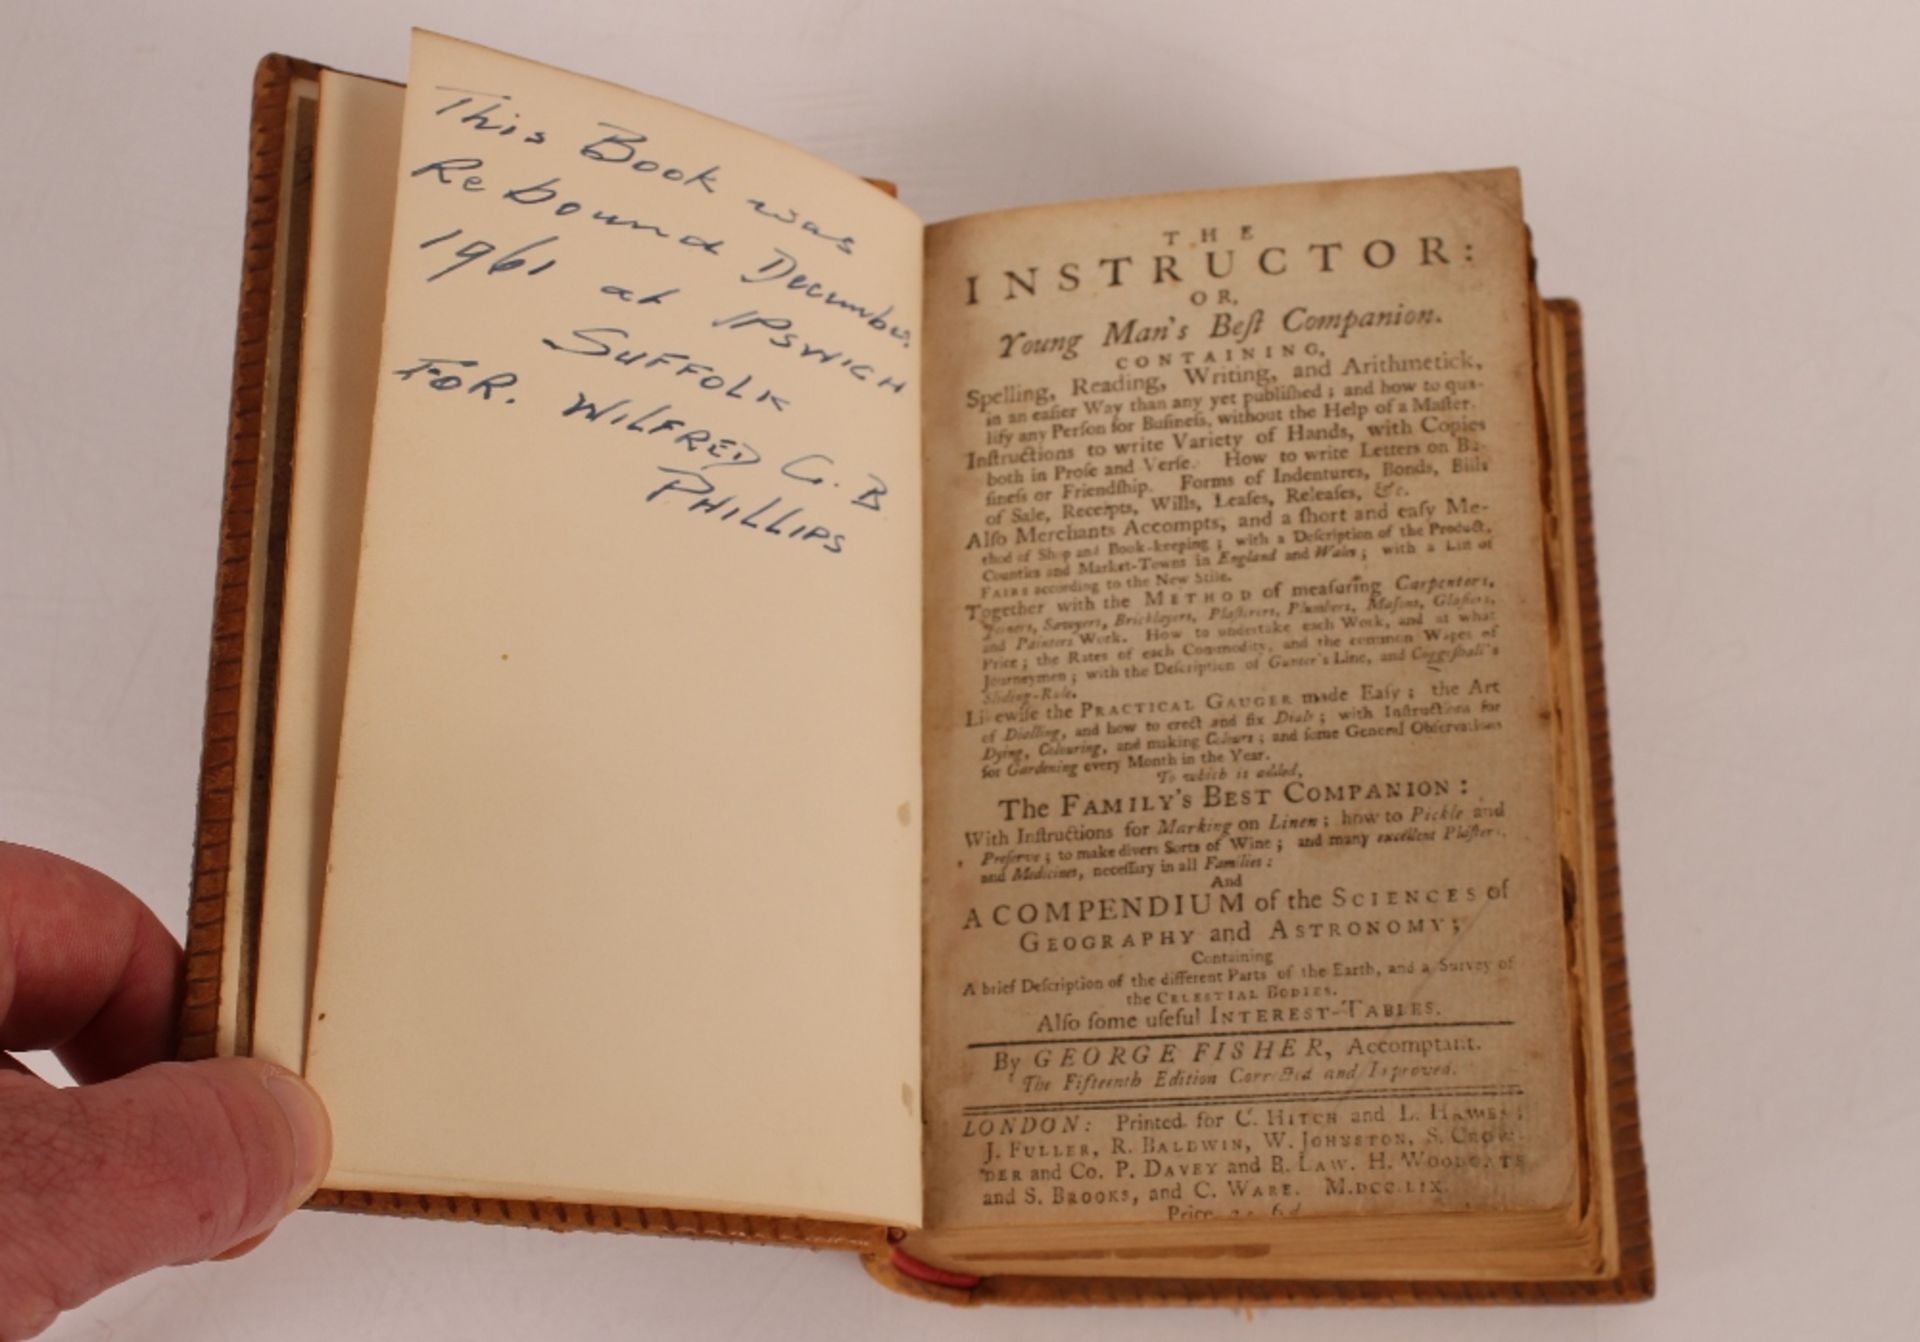 This Book was
Rebound December
1961 at IPSWICH
SUFFOLK
FOR. WILFRED G. B
PHILLIPS
THE
INSTRUCTOR:
OR,
Young Man's Beſt Companion.
CONTAINING,
Spelling, Reading, Writing, and Arithmetick,
in an eaſier Way than any yet publiſhed; and how to qua-
lify any Perſon for Buſineſs, without the Help of a Maſter.
Inſtructions to write Variety of Hands, with Copies
both in Proſe and Verſe. How to write Letters on Bu-
ſineſs or Friendſhip. Forms of Indentures, Bonds, Bills
of Sale, Receipts, Wills, Leaſes, Releaſes, &c.
Alſo Merchants Accompts, and a ſhort and eaſy Me-
thod of Shop and Book-keeping; with a Deſcription of the Product,
Counties and Market-Towns in England and Wales; with a Liſt of
FAIRS according to the New Stile.
Together with the METHOD of meaſuring Carpenters,
Joiners, Sawyers, Bricklayers, Plaſterers, Plumbers, Maſons, Glaſiers,
and Painters Work. How to undertake each Work, and at what
Price; the Rates of each Commodity, and the common Wages of
Journeymen; with the Deſcription of Gunter's Line, and Coggeſhall's
Sliding-Rule.
Likewiſe the PRACTICAL GAUGER made Eaſy; the Art
of Dialling, and how to erect and fix Dials; with Inſtructions for
Dying, Colouring, and making Colours; and ſome General Obſervations
for Gardening every Month in the Year.
To which is added,
The FAMILY'S BEST COMPANION:
With Inſtructions for Marking on Linen; how to Pickle and
Preſerve; to make divers Sorts of Wine; and many excellent Plaſters,
and Medicines, neceſſary in all Families:
And
A COMPENDIUM of the SCIENCES of
GEOGRAPHY and ASTRONOMY;
Containing
A brief Deſcription of the different Parts of the Earth, and a Survey of
the CELESTIAL BODIES.
Alſo ſome uſeful INTEREST-TABLES.
By GEORGE FISHER, Accomptant.
The Fifteenth Edition Corrected and Improved.
LONDON: Printed for C. HITCH and L. HAWES;
J. FULLER, R. BALDWIN, W. JOHNSTON, S. CROW-
DER and Co. P. DAVEY and B. LAW. H. WOODGATE
and S. BROOKS, and C. WARE. M.DCC.LIX.
Price 2s. 6d